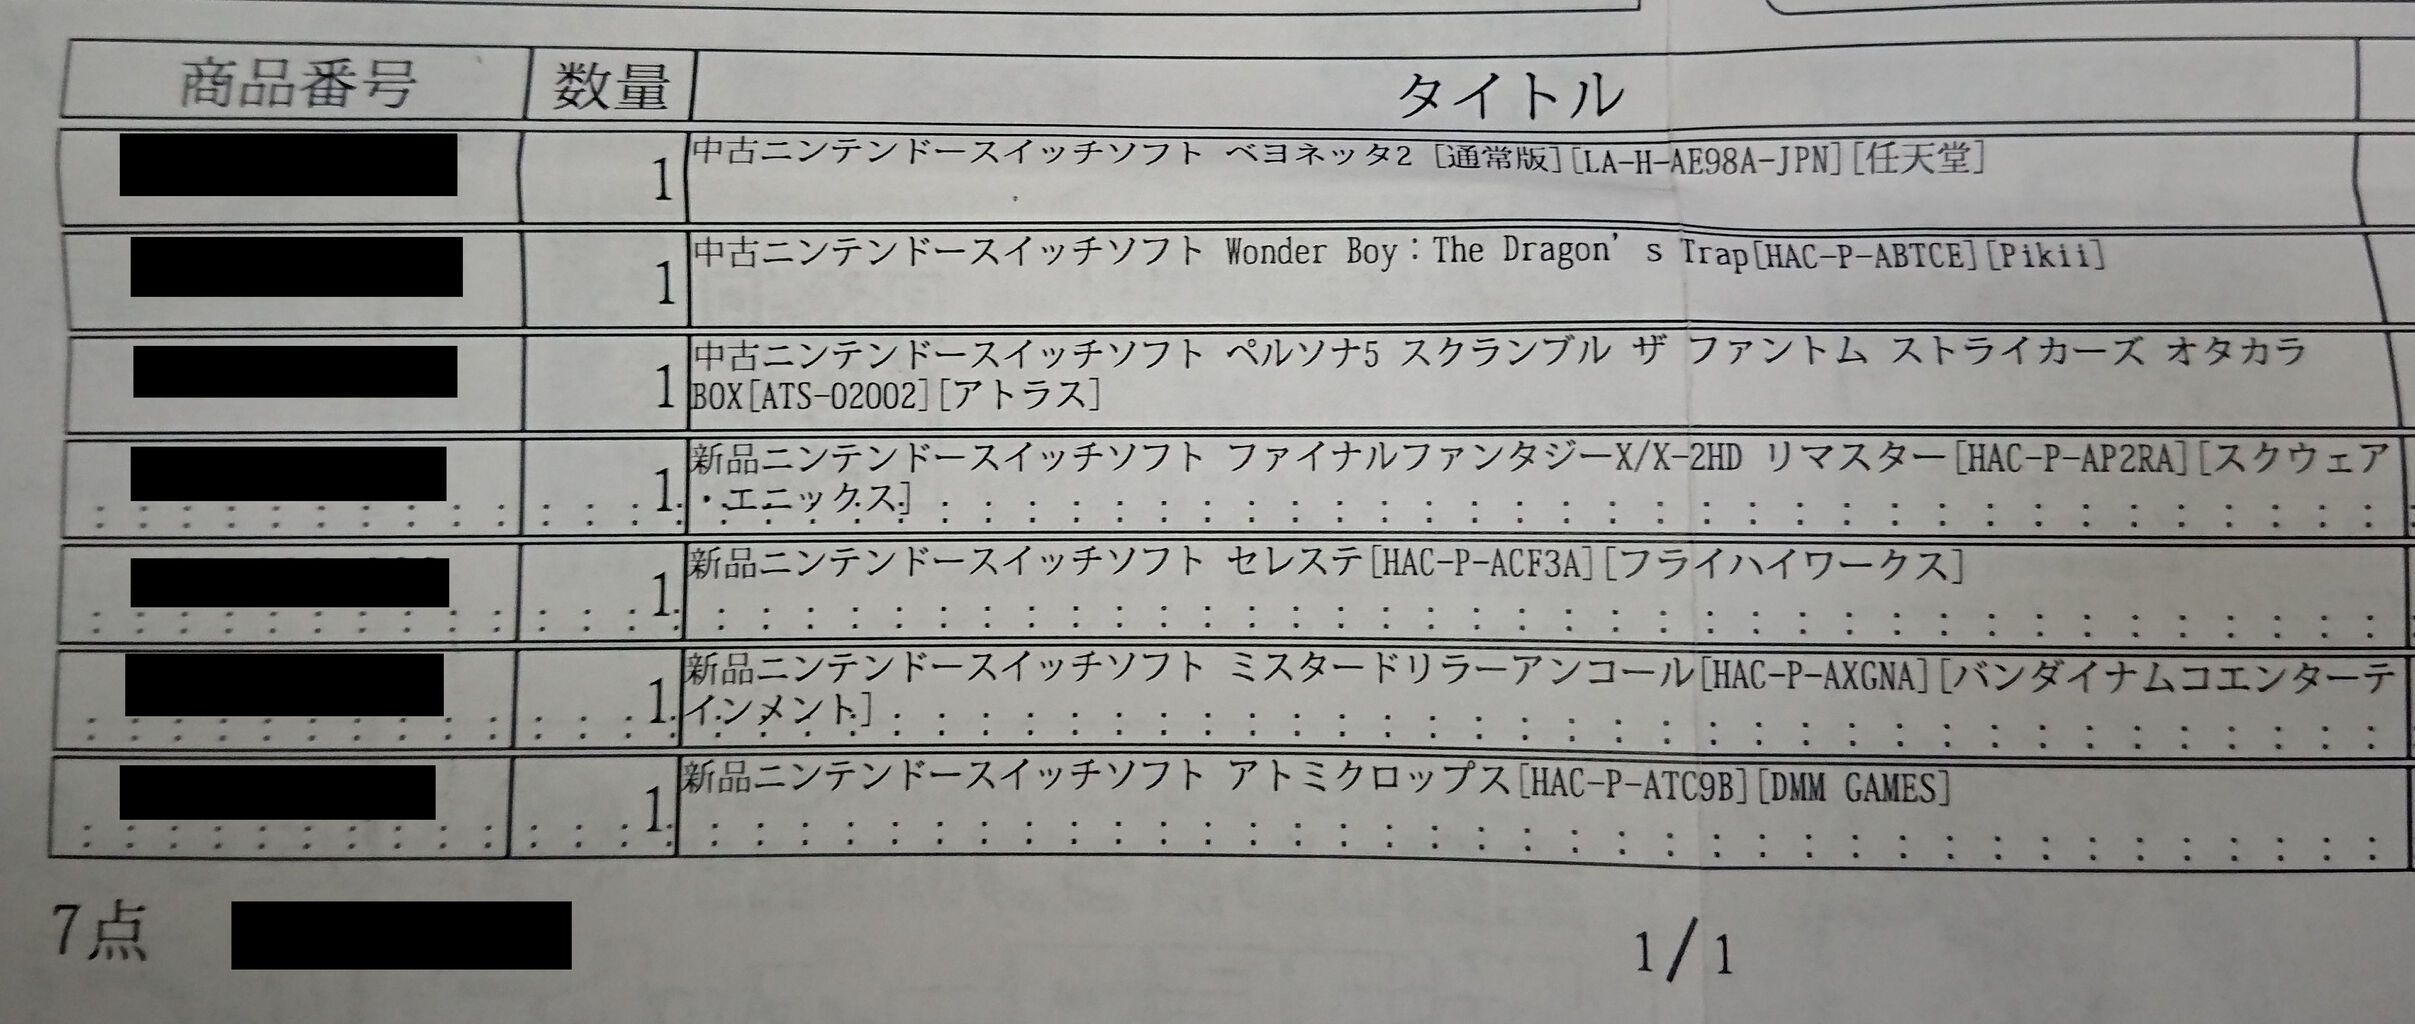 商品番号 数量 タイトル
1 中古ニンテンドースイッチソフト ベヨネッタ2 [通常版][LA-H-AE98A-JPN][任天堂]
1 中古ニンテンドースイッチソフト Wonder Boy：The Dragon’s Trap[HAC-P-ABTCE][Pikii]
1 中古ニンテンドースイッチソフト ペルソナ5 スクランブル ザ ファントム ストライカーズ オタカラ
BOX[ATS-02002][アトラス]
1 新品ニンテンドースイッチソフト ファイナルファンタジーX/X-2HD リマスター[HAC-P-AP2RA][スクウェア
・エニックス]
1 新品ニンテンドースイッチソフト セレステ[HAC-P-ACF3A][フライハイワークス]
1 新品ニンテンドースイッチソフト ミスタードリラーアンコール[HAC-P-AXGNA][バンダイナムコエンターテ
インメント]
1 新品ニンテンドースイッチソフト アトミクロップス[HAC-P-ATC9B][DMM GAMES]
7点
1/1